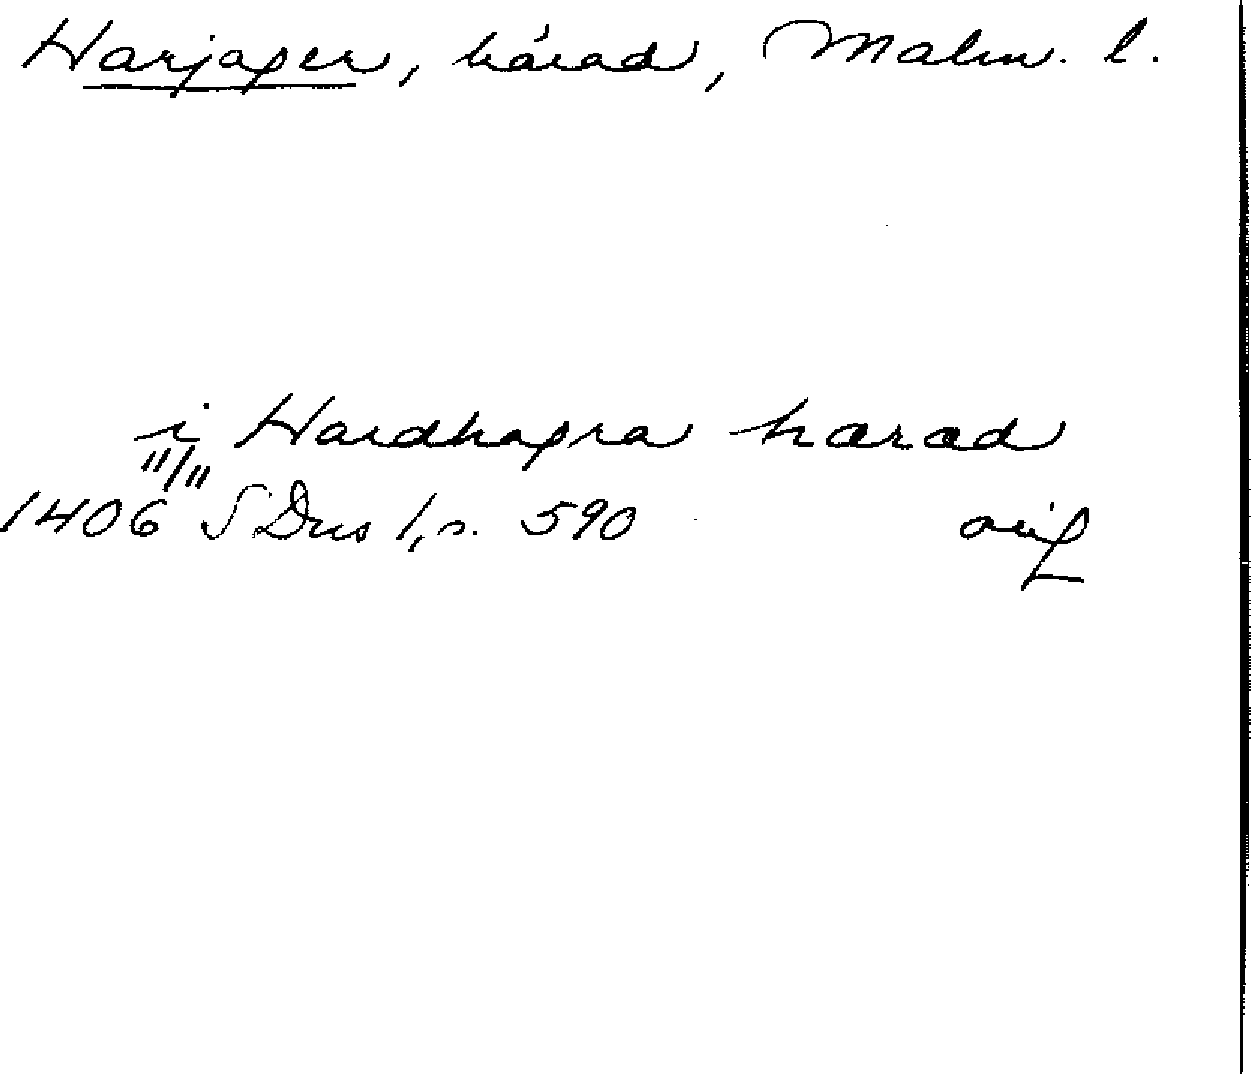 Harjager, härad, Malm. l.
i Hardhagra hæræd
11/11
1406 SDns 1, s. 590 orig